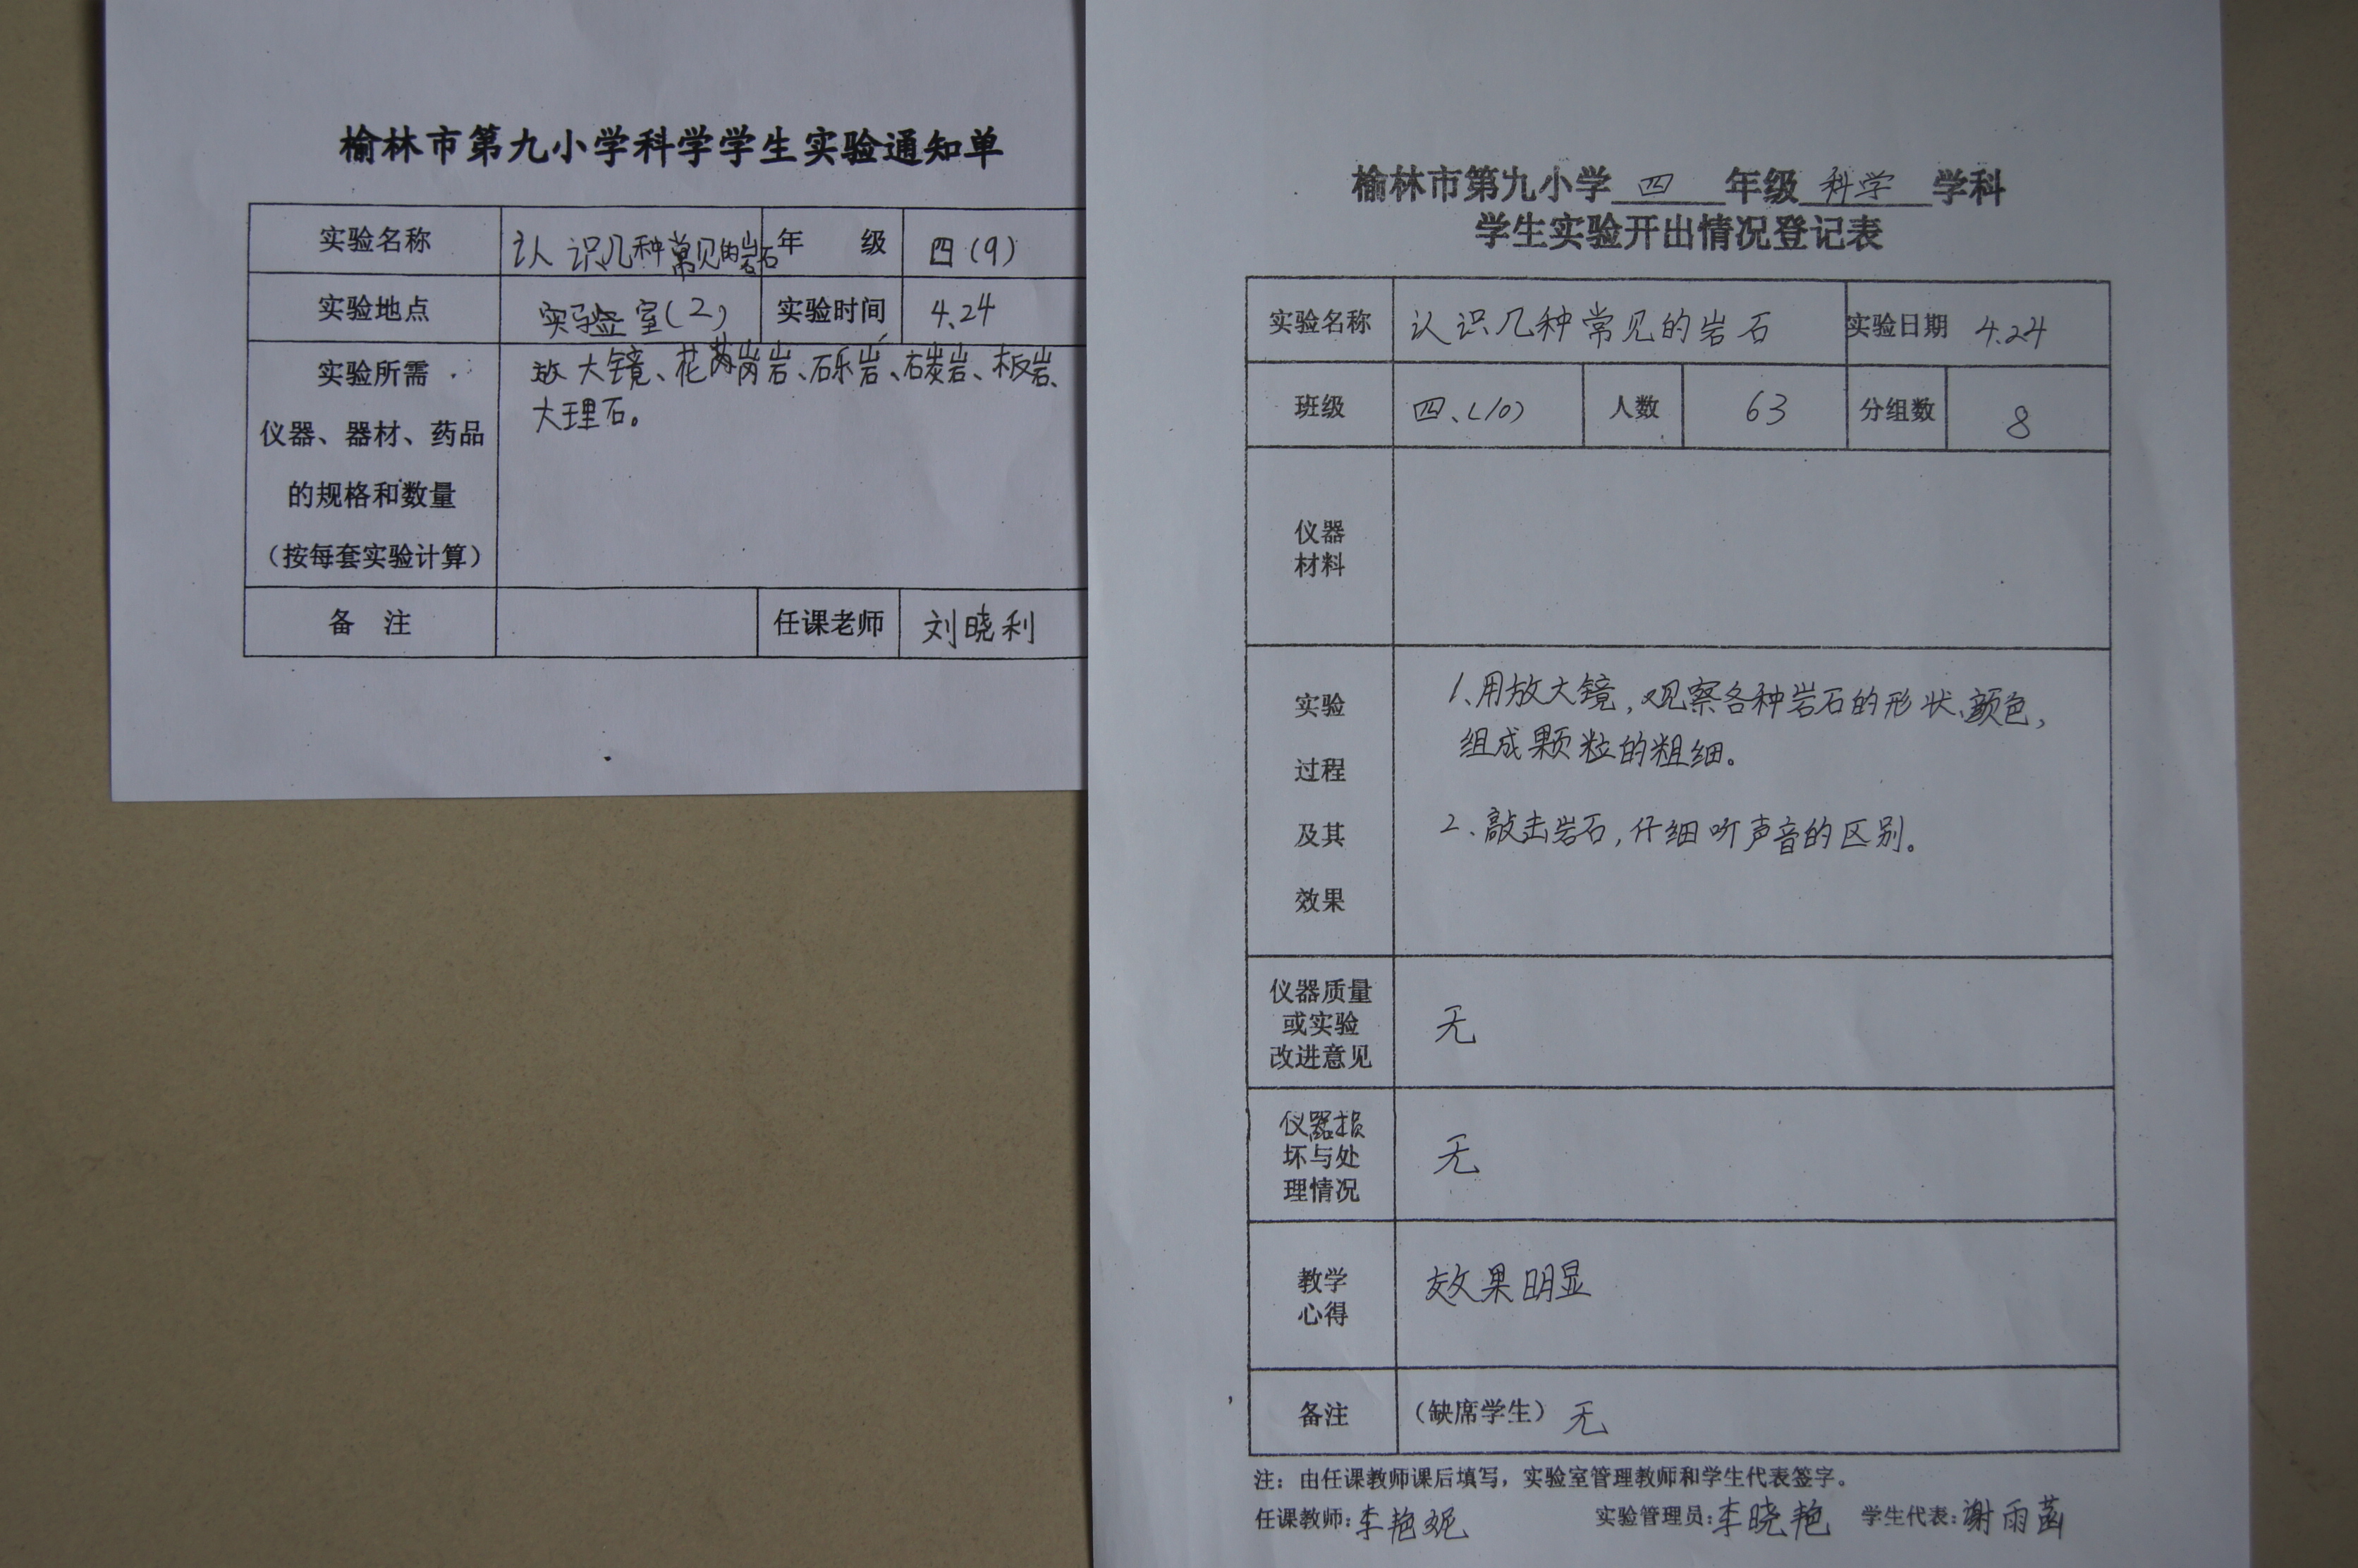 榆林市第九小学科学学生实验通知单
实验名称 认识几种常见的岩石 年 级 四(9)
实验地点 实验室(2) 实验时间 4.24
实验所需
仪器、器材、药品
的规格和数量
(按每套实验计算)
放大镜、花岗岩、砾岩、石炭岩、板岩、
大理石。
备 注 任课老师 刘晓利
榆林市第九小学 四 年级 科学 学科
学生实验开出情况登记表
实验名称 认识几种常见的岩石 实验日期 4.24
班级 四、(10) 人数 63 分组数 8
仪器
材料
实验
过程
及其
效果
1、用放大镜,观察各种岩石的形状、颜色,
组成颗粒的粗细。
2、敲击岩石,仔细听声音的区别。
仪器质量
或实验
改进意见
无
仪器损
坏与处
理情况
无
教学
心得
效果明显
备注 (缺席学生) 无
注:由任课教师课后填写,实验室管理教师和学生代表签字。
任课教师:李艳妮 实验管理员:李晓艳 学生代表:谢雨菡